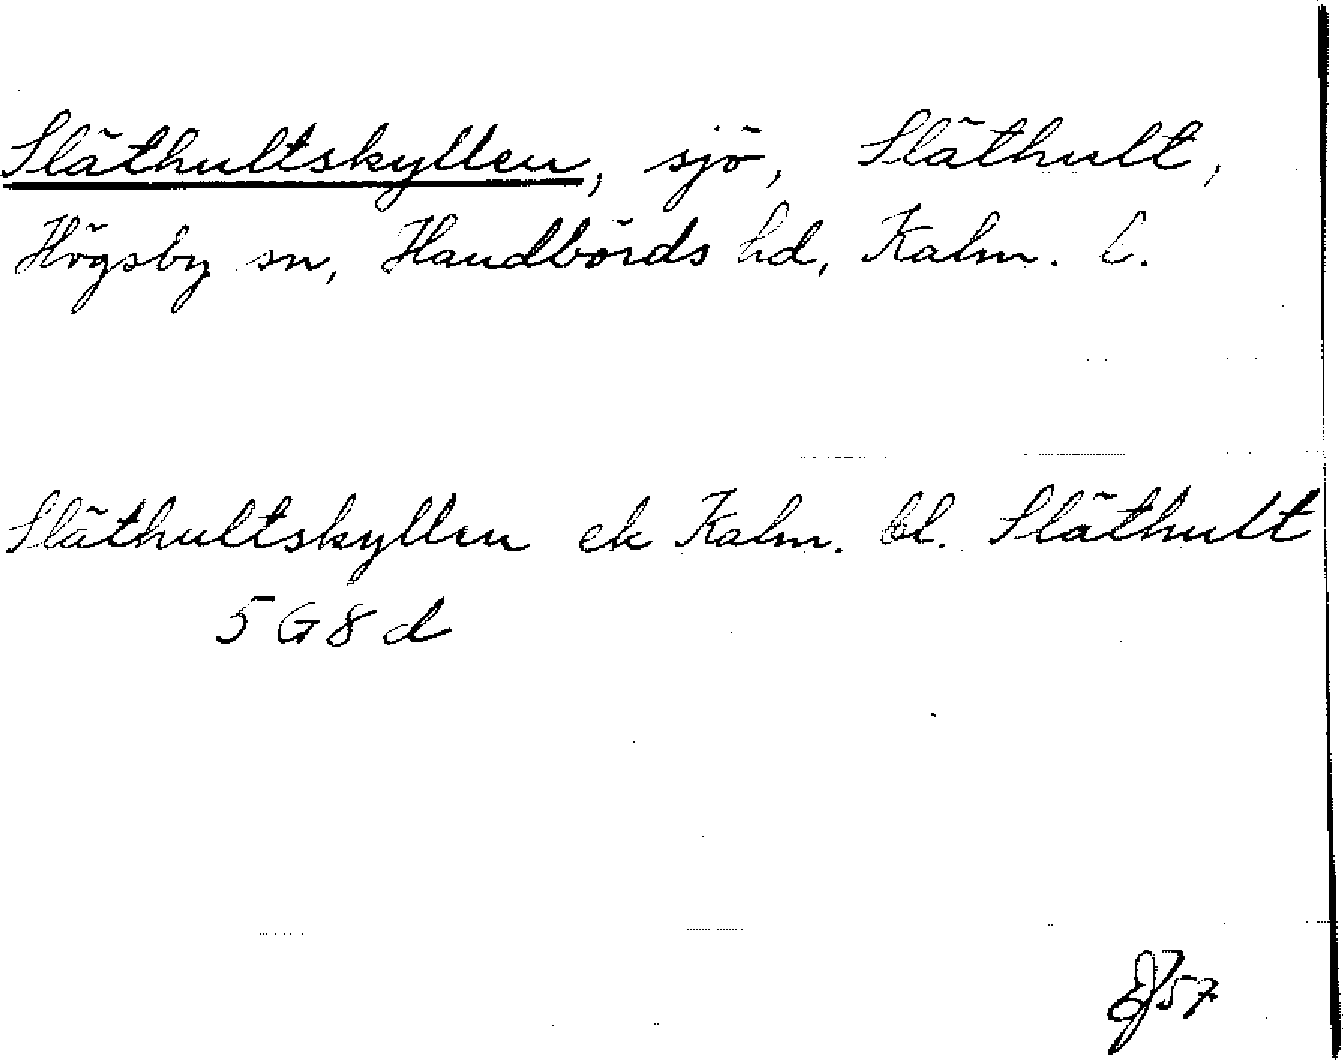 Släthultskyllen, sjö, Släthult,
Högsby sn, Handbörds hd, Kalm. l.
Släthultskyllen ek Kalm. bl. Släthult
5 G 8 d
57